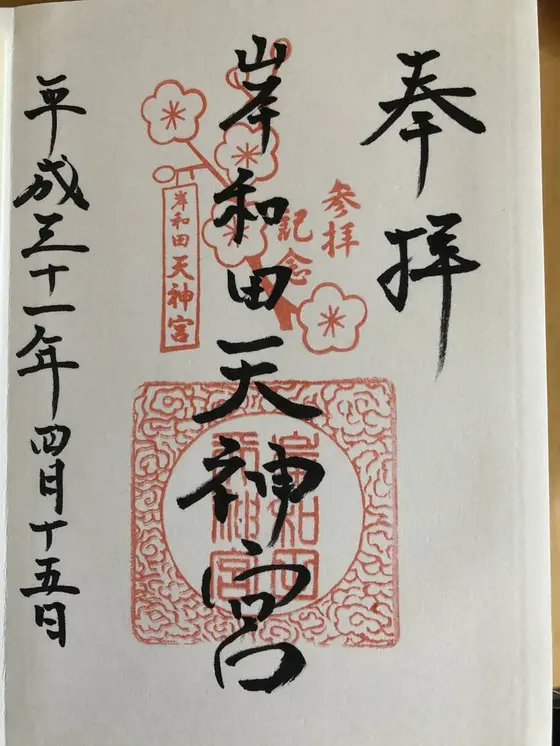 奉拝
参拝
記念
岸和田天神宮
岸和田天神宮
岸和田
天神宮
平成三十一年四月十五日